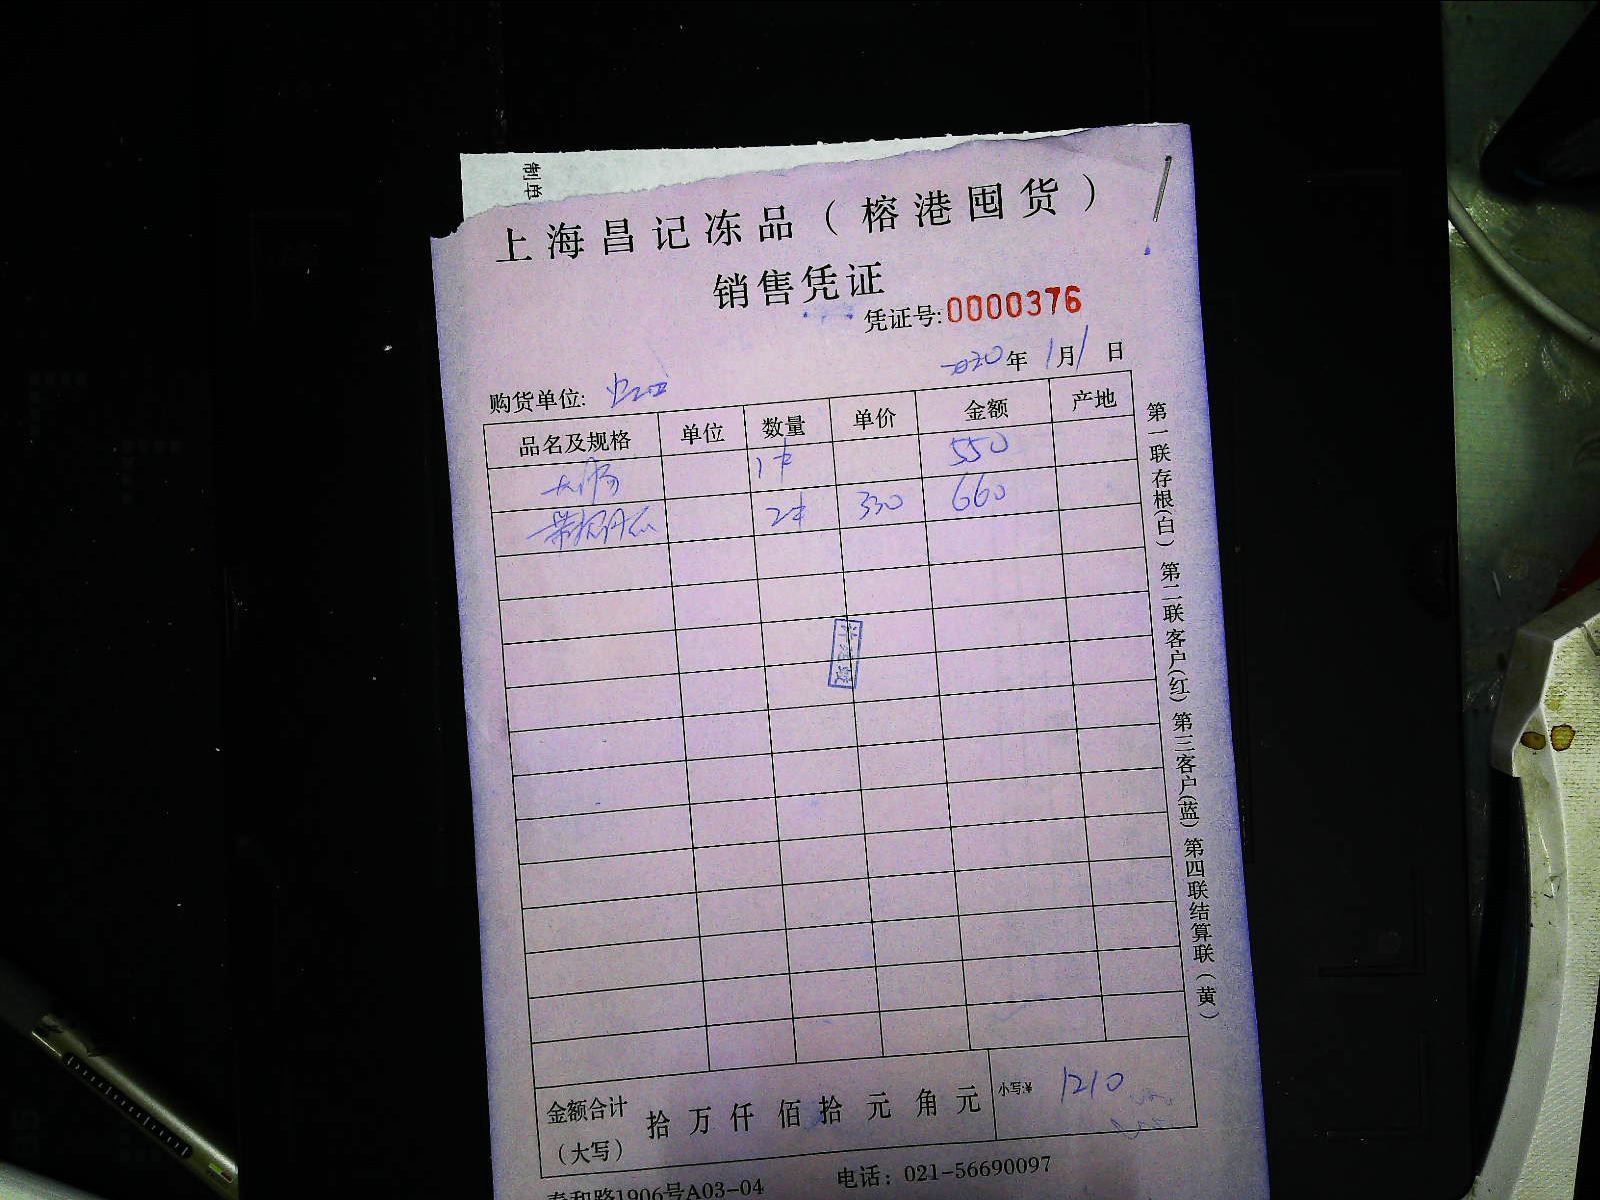 制单
上海昌记冻品（榕港囤货）
销售凭证
凭证号:0000376
2020年1月1日
购货单位:
品名及规格 单位 数量 单价 金额 产地
1件 550
2件 330 660
金额合计（大写） 拾万仟佰拾元角元 小写:¥ 1210
泰和路1906号A03-04 电话：021-56690097
第一联存根(白）第二联客户(红）第三客户(蓝）第四联结算联（黄）